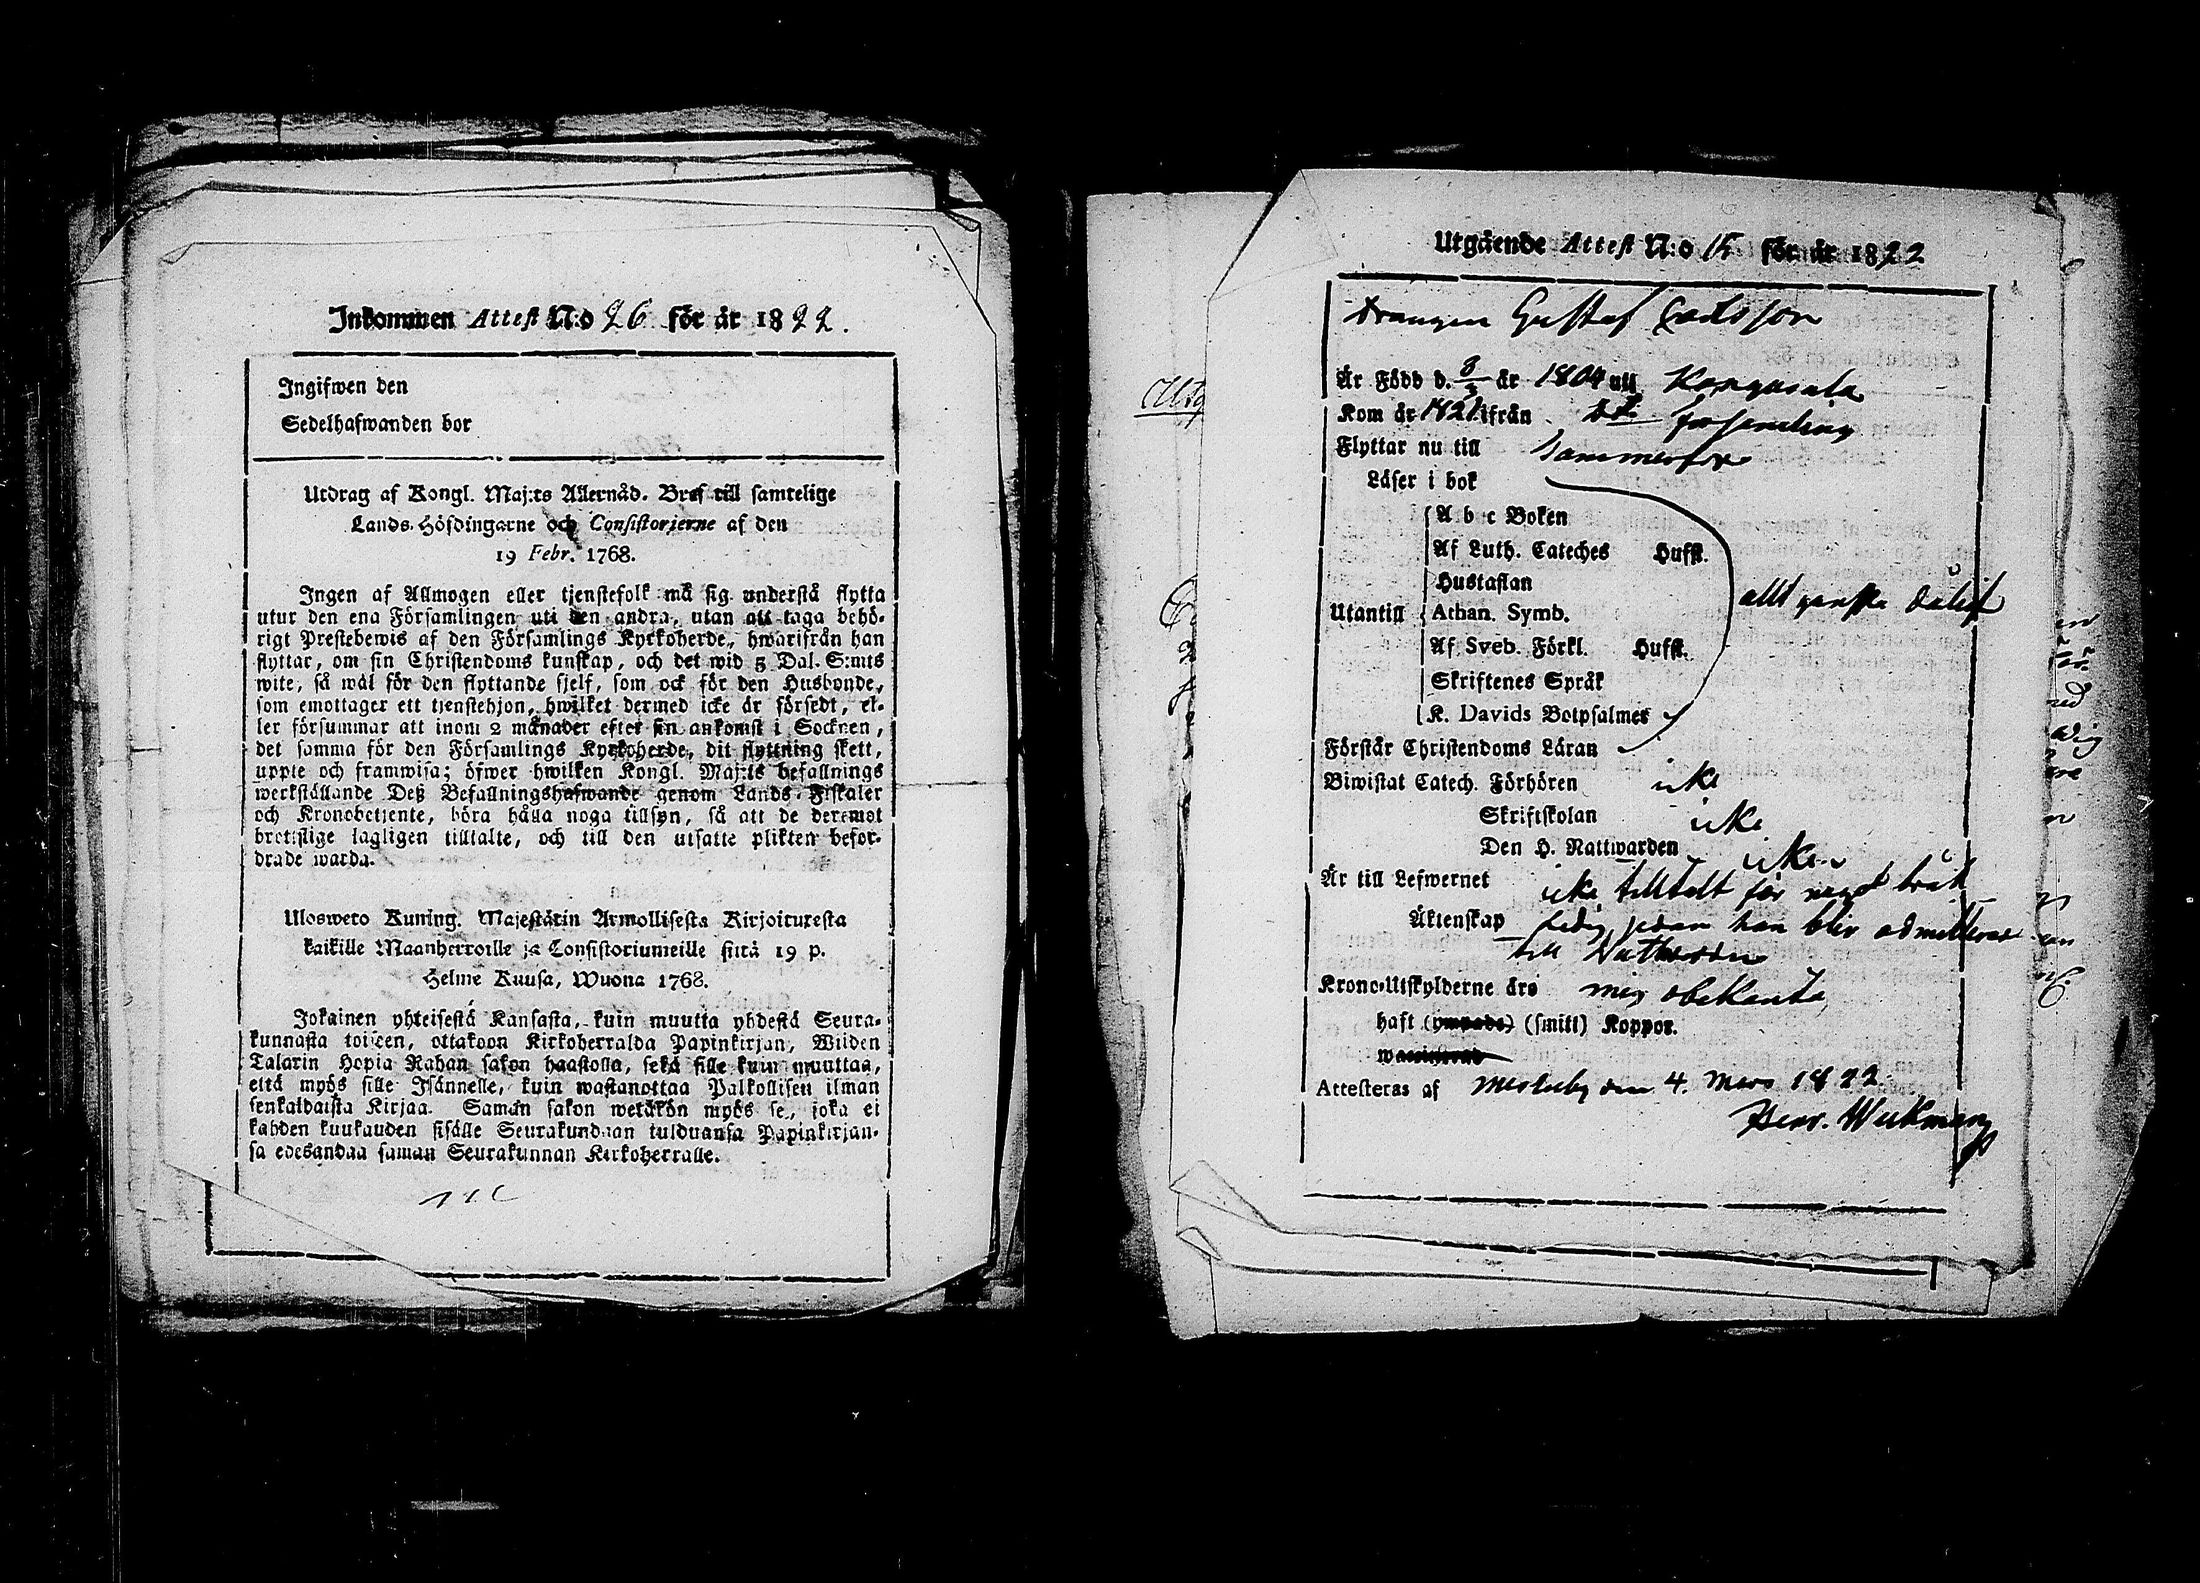 Inkommen Attest N:o 26 för år 1822.
Ingifwen den
Sedelhafwanden bor
Utdrag af Kongl. Maj:ts Allernåd. Bref till samtelige
Lands-Höfdingarne och Consistorierne af den
19 Febr. 1768.
Ingen af Allmogen eller tjenstefolk må sig understå flytta
utur den ena Församlingen uti den andra, utan att taga behö-
rigt Prestebewis af den Församlings Kyrkoherde, hwarifrån han
flyttar, om sin Christendoms kunskap, och det wid 5 Dal. S:mts
wite, så wäl för den flyttande sjelf, som ock för den Husbonde,
som emottager ett tjenstehjon, hwilket dermed icke är försedt, el-
ler försummar att inom 2 månader efter sin ankomst i Socknen,
det samma för den Församlings Kyrkoherde, dit flyttning skett,
uppte och framwisa; öfwer hwilken Kongl. Maj:ts befallnings
werkställande Deß Befallningshafwande genom Lands-Fiskaler
och Kronobetjente, böra hålla noga tillsyn, så att de deremot
brottslige lagligen tilltalte, och till den utsatte plikten befor-
drade warda.
Uloswето Kuning. Majestätin Armollisesta Kirjoituxesta
kaikille Maanherroille ja Consistoriumeille siitä 19 p.
Helme Kuusa, Wuona 1768.
Jokainen yhteisestä Kansasta, kuin muutta yhdestä Seura-
kunnasta toiseen, ottakoon Kirkoherralda Papinkirjan, Wiiden
Talarin Hopia Rahan sakon haastolla, sekä sille kuin muuttaa,
että myös sille Isännelle, kuin wastanottaa Palkollisen ilman
senkaldaista Kirjaa. Saman sakon wetäkön myös se, joka ei
kahden kuukauden sisälle Seurakundaan tulduansa Papinkirjan-
sa edesandaa saman Seurakunnan Kirkoherralle.
Utgående Attest N:o 15 för år 1822
Drängen Gustaf Carlsson
Är Född d. 8/3 år 1804 uti Kangasala
Kom år 1821 ifrån församling
Flyttar nu till Tammerfors
Läser i bok
A b c Boken
Af Luth. Cateches Hufst.
Hustaflan
Utantill Athan. Symb.
allt ganska dåligt
Af Sveb. Förkl. Hufst.
Skriftenes Språk
K. Davids Botpsalmer
Förstår Christendoms Läran
Biwistat Catech. Förhören icke
Skriftskolan icke
Den H. Nattwarden icke
Är till Lefwernet icke tilltalt för något brått
Äktenskap ledig sedan han blir admitterad
till Nattvarden
Krono-Utskylderne äro mig obekanta
haft (ympade) (smitt) Koppor.
Attesteras af Messuby den 4. Mars 1822
Henr. Wickman